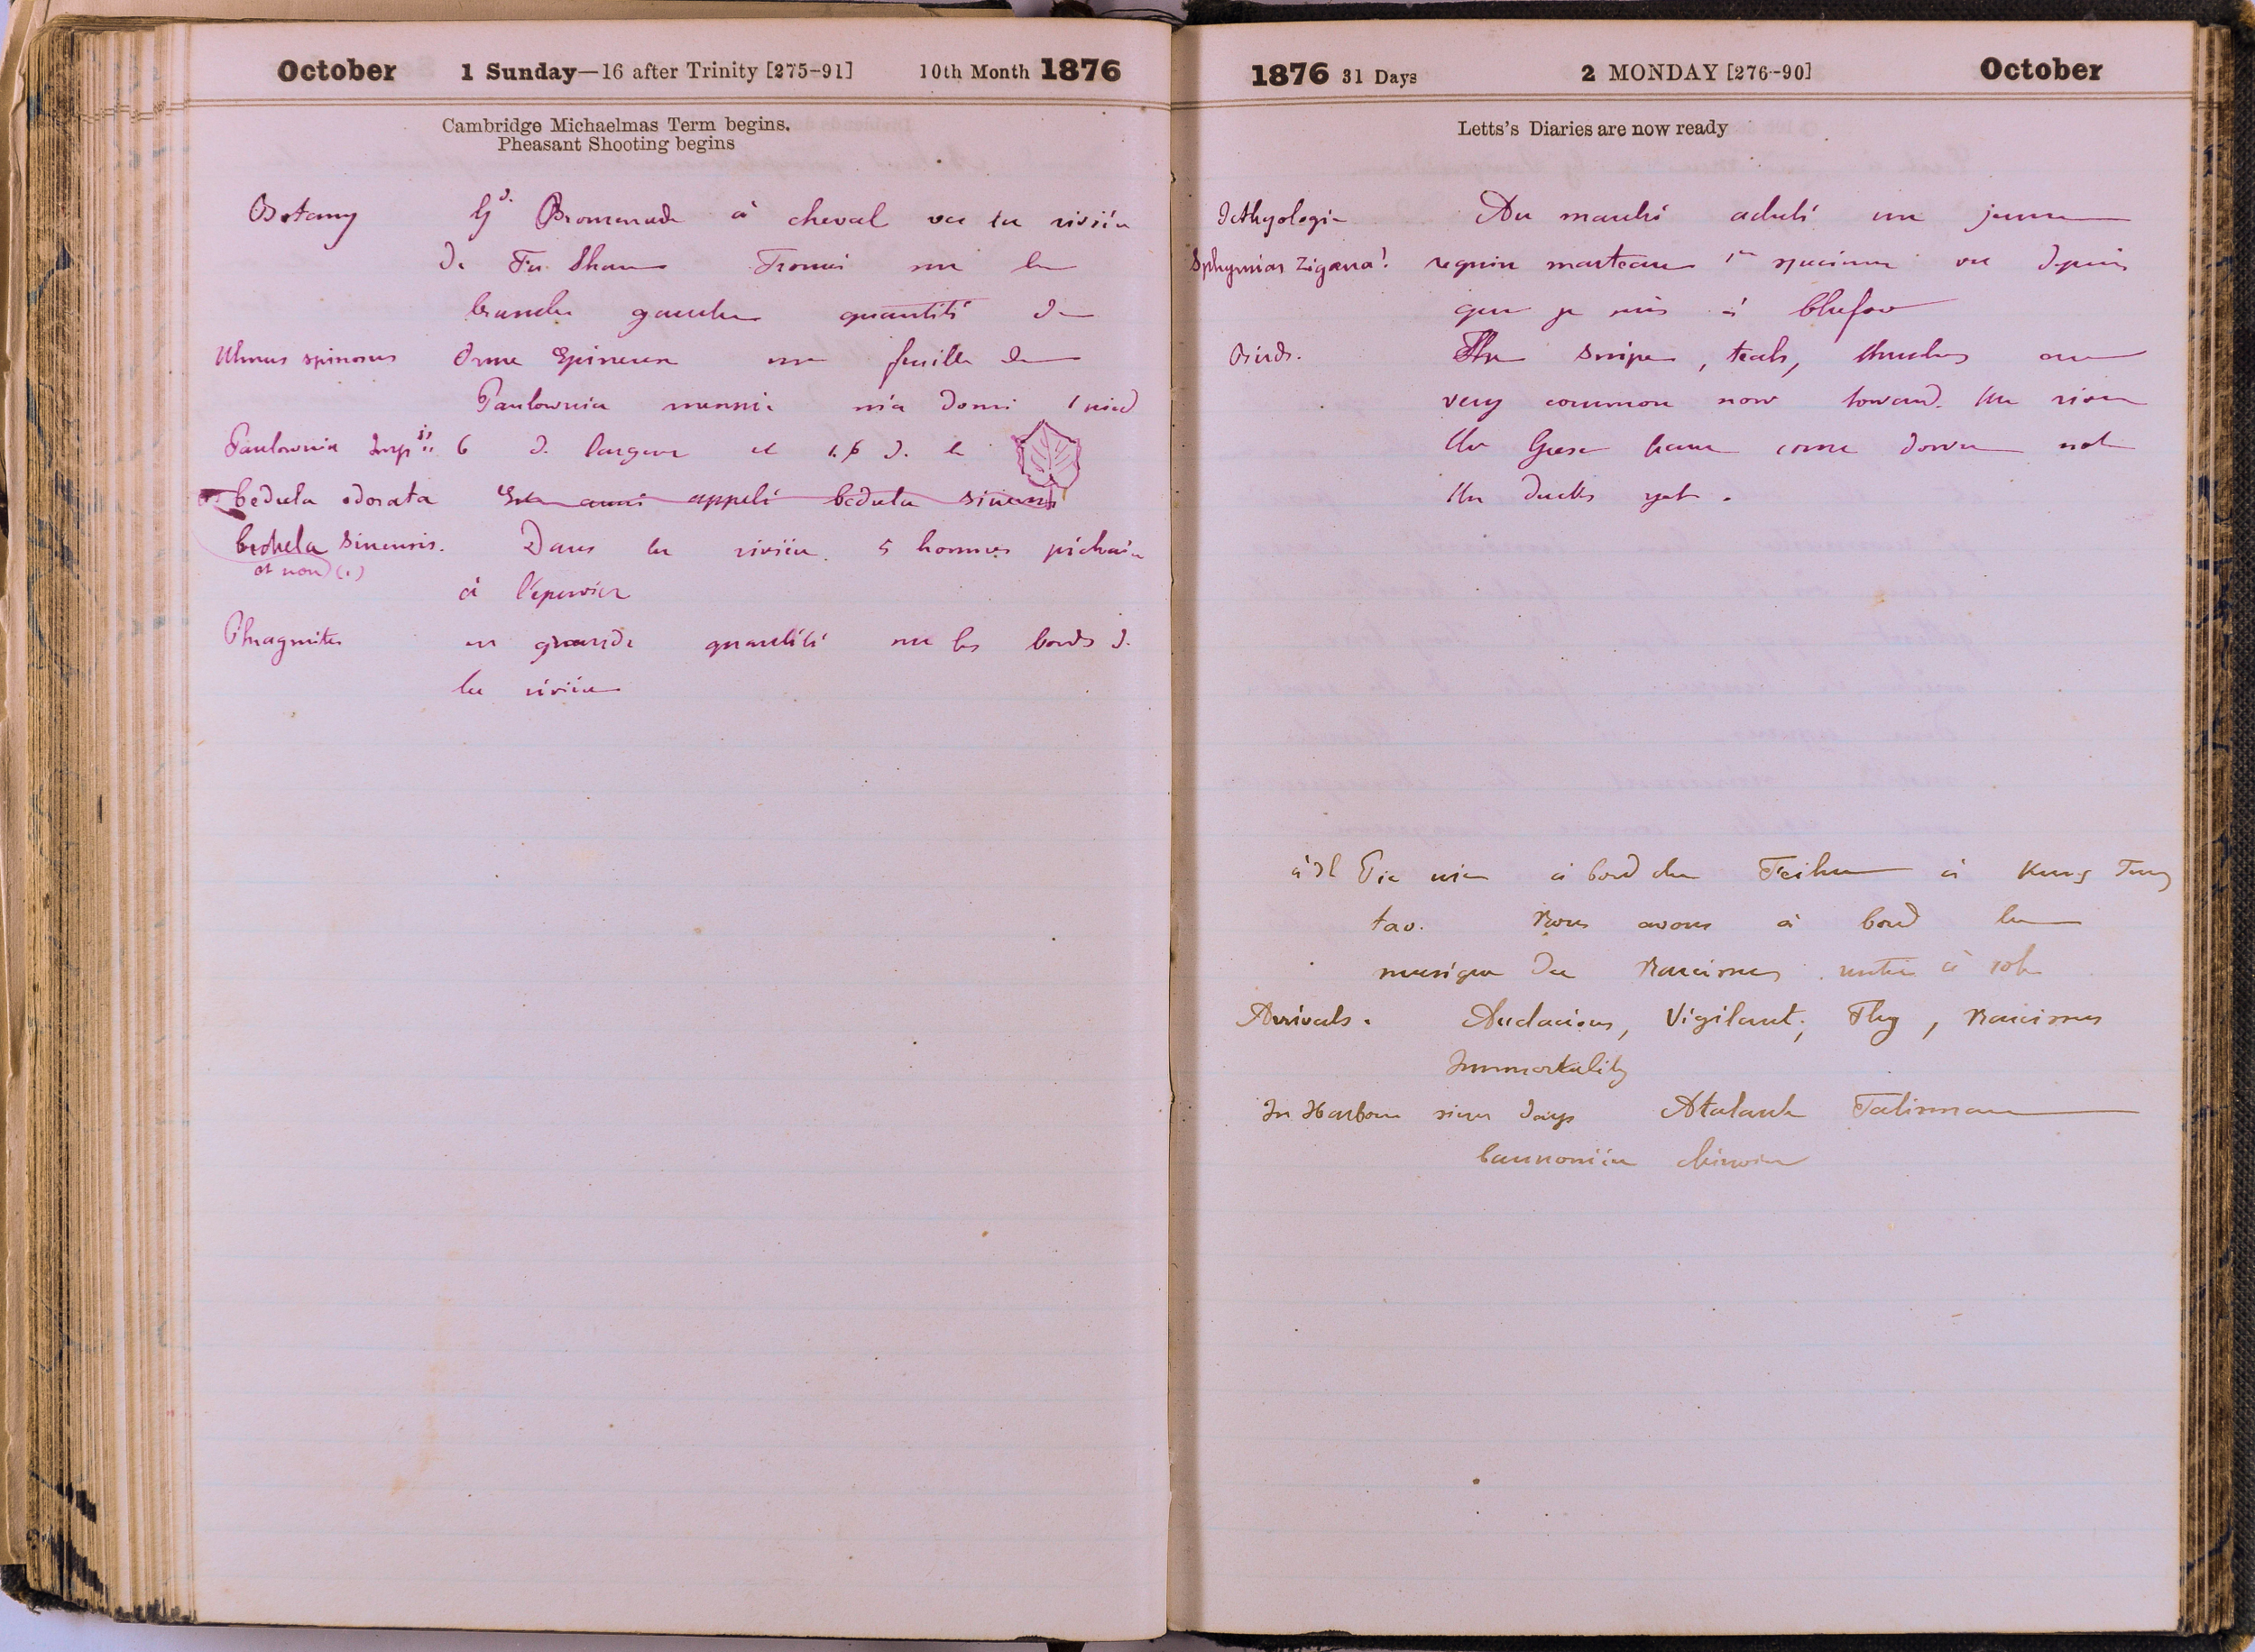 October 1 Sunday—16 after Trinity [275-91] 10th Month 1876
Cambridge Michaelmas Term begins.
Pheasant Shooting begins
Botany Gd. Promenade à cheval vu la rivière
de Fu Shan Trouvé sur la
branche gauche quantité de
Ulmus spinosus Orme Epineux une feuille de
Paulownia
Paulownia Imp 6 d. largeur et 1.6 d. l
bedula odorata appelé bedula sinensis
bedula sinensis. Dans la rivière 5 hommes pêchaient
et non (1)
à l'épervier
Phragmites en grande quantité sur les bords d.
la rivière
1876 31 Days 2 MONDAY [276-90] October
Letts's Diaries are now ready
Icthyologie Au marché acheté un jeune
Sphyrnias Zigæna! requin marteau 1er specimen vu depuis
que je suis à Chefoo
Birds. The Snipes, teals, thrushes are
very common now toward the river
the Geese have come down not
the ducks yet.
à bord du Feihu à Kung Tung
tao. Nous avons à bord la
musique du Narcissus
Arrivals. Audacious, Vigilant, Fly, Narcissus
Immortality
In Harbour since days Atalante Talisman
Cannonière chinoise